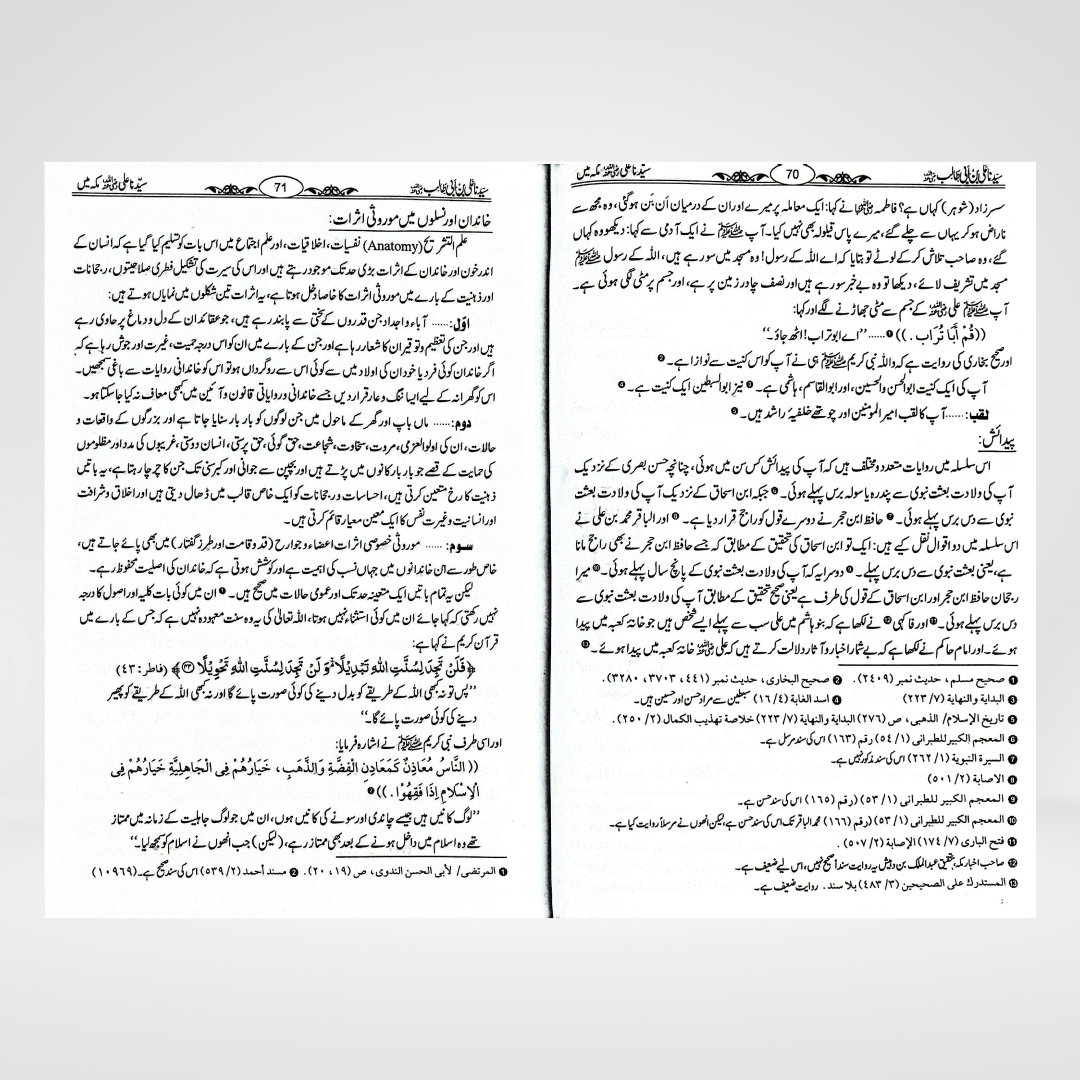 سیدنا علی بن ابی طالب رضی اللہ عنہ 70 سیدنا علی رضی اللہ عنہ مکہ میں
سسرزاد (شوہر) کہاں ہے؟ فاطمہ رضی اللہ عنہا نے کہا: ایک معاملہ پر میرے اور ان کے درمیان اَن بَن ہوگئی، وہ مجھ سے
ناراض ہو کر یہاں سے چلے گئے، میرے پاس قیلولہ بھی نہیں کیا۔ آپ ﷺ نے ایک آدمی سے کہا: دیکھو وہ کہاں
گئے، وہ صاحب تلاش کر کے لوٹے تو بتایا کہ اے اللہ کے رسول! وہ مسجد میں سو رہے ہیں، اللہ کے رسول ﷺ
مسجد میں تشریف لائے، دیکھا تو وہ بے خبر سو رہے ہیں اور نصف چادر زمین پر ہے، اور جسم پر مٹی لگی ہوئی ہے۔
آپ ﷺ علی رضی اللہ عنہ کے جسم سے مٹی جھاڑنے لگے اور کہا:
((قُمْ أَبَا تُرَابٍ .)) ❶ ...... ’’اے ابوتراب! اٹھ جاؤ۔‘‘
اور صحیح بخاری کی روایت ہے کہ واللہ نبی کریم ﷺ ہی نے آپ کو اس کنیت سے نوازا ہے۔ ❷
آپ کی ایک کنیت ابوالحسن والحسین، اور ابوالقاسم، ہاشمی ہے۔ ❸ نیز ابوالسبطین ایک کنیت ہے۔ ❹
لقب: ...... آپ کا لقب امیر المؤمنین اور چوتھے خلیفۂ راشد ہیں۔ ❺
پیدائش:
اس سلسلہ میں روایات متعدد و مختلف ہیں کہ آپ کی پیدائش کس سن میں ہوئی، چنانچہ حسن بصری کے نزدیک
آپ کی ولادت بعثت نبوی سے پندرہ یا سولہ برس پہلے ہوئی۔ ❻ جبکہ ابن اسحاق کے نزدیک آپ کی ولادت بعثت
نبوی سے دس برس پہلے ہوئی۔ ❼ حافظ ابن حجر نے دوسرے قول کو راجح قرار دیا ہے۔ ❽ اور الباقر محمد بن علی نے
اس سلسلہ میں دو اقوال نقل کیے ہیں: ایک تو ابن اسحاق کی تحقیق کے مطابق کہ جسے حافظ ابن حجر نے بھی راجح مانا
ہے، یعنی بعثت نبوی سے دس برس پہلے۔ ❾ دوسرا یہ کہ آپ کی ولادت بعثت نبوی کے پانچ سال پہلے ہوئی۔ ❿ میرا
رجحان حافظ ابن حجر اور ابن اسحاق کے قول کی طرف ہے یعنی صحیح تحقیق کے مطابق آپ کی ولادت بعثت نبوی سے
دس برس پہلے ہوئی۔ ⓫ اور فاکہی ⓬ نے لکھا ہے کہ بنو ہاشم میں علی سب سے پہلے ایسے شخص ہیں جو خانۂ کعبہ میں پیدا
ہوئے۔ اور امام حاکم نے لکھا ہے کہ بے شمار اخبار و آثار دلالت کرتے ہیں کہ علی رضی اللہ عنہ خانۂ کعبہ میں پیدا ہوئے۔ ⓭
❶ صحیح مسلم، حدیث نمبر (٢٤٠٩). ❷ صحیح البخاری، حدیث نمبر (٤٤١، ٣٧٠٣، ٣٢٨٠).
❸ البدایة والنهایة (٧/ ٢٢٣) ❹ اسد الغابة (٤/ ١٦) سبطین سے مراد حسن اور حسین ہیں۔
❺ تاریخ الإسلام/ الذهبی، ص (٢٧٦) البدایة والنهایة (٧/ ٢٢٣) خلاصة تهذیب الکمال (٢/ ٢٥٠).
❻ المعجم الکبیر للطبرانی (١/ ٥٤) رقم (١٦٣) اس کی سند مرسل ہے۔
❼ السیرة النبویة (١/ ٢٦٢) اس کی سند مذکور نہیں ہے۔
❽ الاصابة (٢/ ٥٠١)
❾ المعجم الکبیر للطبرانی (١/ ٥٣) (رقم ١٦٥) اس کی سند حسن ہے۔
❿ المعجم الکبیر للطبرانی (١/ ٥٣) (رقم ١٦٦) محمد الباقر تک اس کی سند حسن ہے، لیکن انھوں نے مرسلاً روایت کیا ہے۔
⓫ فتح الباری (٧/ ١٧٤) الإصابة (٢/ ٥٠٧).
⓬ صاحب اخبار مکہ بتحقیق عبدالملک بن دہیش یہ روایت سنداً صحیح نہیں، اس لیے ضعیف ہے۔
⓭ المستدرک علی الصحیحین (٣/ ٤٨٣) بلا سند. روایت ضعیف ہے۔
سیدنا علی بن ابی طالب رضی اللہ عنہ 71 سیدنا علی رضی اللہ عنہ مکہ میں
خاندان اور نسلوں میں موروثی اثرات:
علم التشریح (Anatomy) نفسیات، اخلاقیات، اور علم اجتماع میں اس بات کو تسلیم کیا گیا ہے کہ انسان کے
اندر خون اور خاندان کے اثرات بڑی حد تک موجود رہتے ہیں اور اس کی سیرت کی تشکیل فطری صلاحیتوں، رجحانات
اور ذہنیت کے بارے میں موروثی اثرات کا خاصا دخل ہوتا ہے، یہ اثرات تین شکلوں میں نمایاں ہوتے ہیں:
اوّل: ...... آباء و اجداد جن قدروں کے سختی سے پابند رہے ہیں، جو عقائد ان کے دل و دماغ پر حاوی رہے
ہیں اور جن کی تعظیم و توقیر ان کا شعار رہا ہے اور جن کے بارے میں ان کو اس درجہ حمیت، غیرت اور جوش رہا ہے کہ
اگر خاندان کوئی فرد یا خود ان کی اولاد میں سے کوئی اس سے روگرداں ہو تو اس کو خاندانی روایات سے باغی سمجھیں۔
اس کو گھرانہ کے لیے ایسا ننگ و عار قرار دیں جسے خاندانی و روایاتی قانون و آئین میں بھی معاف نہ کیا جا سکتا ہو۔
دوم: ...... ماں باپ اور گھر کے ماحول میں جن لوگوں کو بار بار سنایا جاتا ہے اور بزرگوں کے واقعات و
حالات، ان کی اولوالعزمی، مروت، سخاوت، شجاعت، حق گوئی، حق پرستی، انسان دوستی، غریبوں کی مدد اور مظلوموں
کی حمایت کے قصے جو بار بار کانوں میں پڑتے ہیں اور بچپن سے جوانی اور کبر سنی تک جن کا چرچا رہتا ہے، یہ باتیں
ذہنیت کا رخ متعین کرتی ہیں، احساسات و رجحانات کو ایک خاص قالب میں ڈھال دیتی ہیں اور اخلاق و شرافت
اور انسانیت و غیرت نفس کا ایک معین معیار قائم کرتی ہیں۔
سوم: ...... موروثی خصوصی اثرات اعضاء و جوارح (قد و قامت اور طرز گفتار) میں بھی پائے جاتے ہیں،
خاص طور سے ان خاندانوں میں جہاں نسب کی اہمیت ہے اور کوشش ہوتی ہے کہ خاندان کی اصلیت محفوظ رہے۔
لیکن یہ تمام باتیں ایک متعینہ حد تک اور عمومی حالات میں صحیح ہیں۔ ❶ ان میں کوئی بات کلیہ اور اصول کا درجہ
نہیں رکھتی کہ کہا جائے ان میں کوئی استثناء نہیں ہوتا، اللہ تعالیٰ کی یہ وہ سنت معہودہ نہیں ہے کہ جس کے بارے میں
قرآن کریم نے کہا ہے:
﴿فَلَنْ تَجِدَ لِسُنَّتِ اللّٰهِ تَبْدِيْلًا ۚ وَلَنْ تَجِدَ لِسُنَّتِ اللّٰهِ تَحْوِيْلًا ﴾ (فاطر: ۴۳)
’’پس تو نہ کبھی اللہ کے طریقے کو بدل دینے کی کوئی صورت پائے گا اور نہ کبھی اللہ کے طریقے کو پھیر
دینے کی کوئی صورت پائے گا۔‘‘
اور اسی طرف نبی کریم ﷺ نے اشارہ فرمایا:
((النَّاسُ مَعَادِنُ كَمَعَادِنِ الْفِضَّةِ وَالذَّهَبِ ، خِيَارُهُمْ فِى الْجَاهِلِيَّةِ خِيَارُهُمْ فِى
الْإِسْلَامِ إِذَا فَقِهُوْا.)) ❷
’’لوگ کانیں ہیں جیسے چاندی اور سونے کی کانیں ہوں، ان میں جو لوگ جاہلیت کے زمانہ میں ممتاز
تھے وہ اسلام میں داخل ہونے کے بعد بھی ممتاز رہے، (لیکن) جب انھوں نے اسلام کو سمجھ لیا۔‘‘
❶ المرتضی/ لأبی الحسن الندوی، ص (١٩، ٢٠). ❷ مسند أحمد (٢/ ٥٣٩) اس کی سند صحیح ہے۔ (١٠٩٦٩)